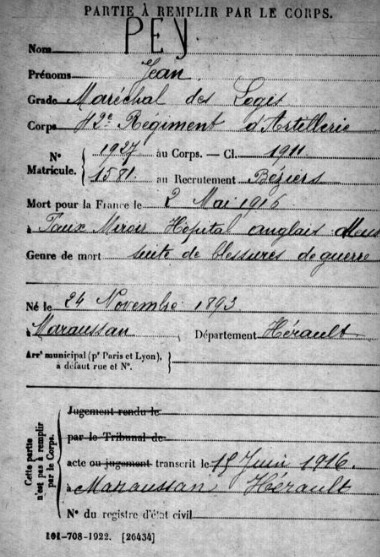 PARTIE À REMPLIR PAR LE CORPS.
Nom PEY
Prénoms Jean
Grade Maréchal des Logis
Corps 42e Régiment d'Artillerie
N° Matricule. { 1927 au Corps. — Cl. 1911
1581 au Recrutement Béziers
Mort pour la France le 2 Mai 1916
à Faux Miroir Hôpital anglais Meuse
Genre de mort suite de blessures de guerre
Né le 24 Novembre 1893
à Maraussan Département Hérault
Arrt municipal (pr Paris et Lyon), à défaut rue et N°. }
Cette partie n'est pas à remplir par le Corps. {
Jugement rendu le
par le Tribunal de
acte ou jugement transcrit le 15 Juin 1916.
à Maraussan Hérault
N° du registre d'état civil
101-708-1922. [26434]